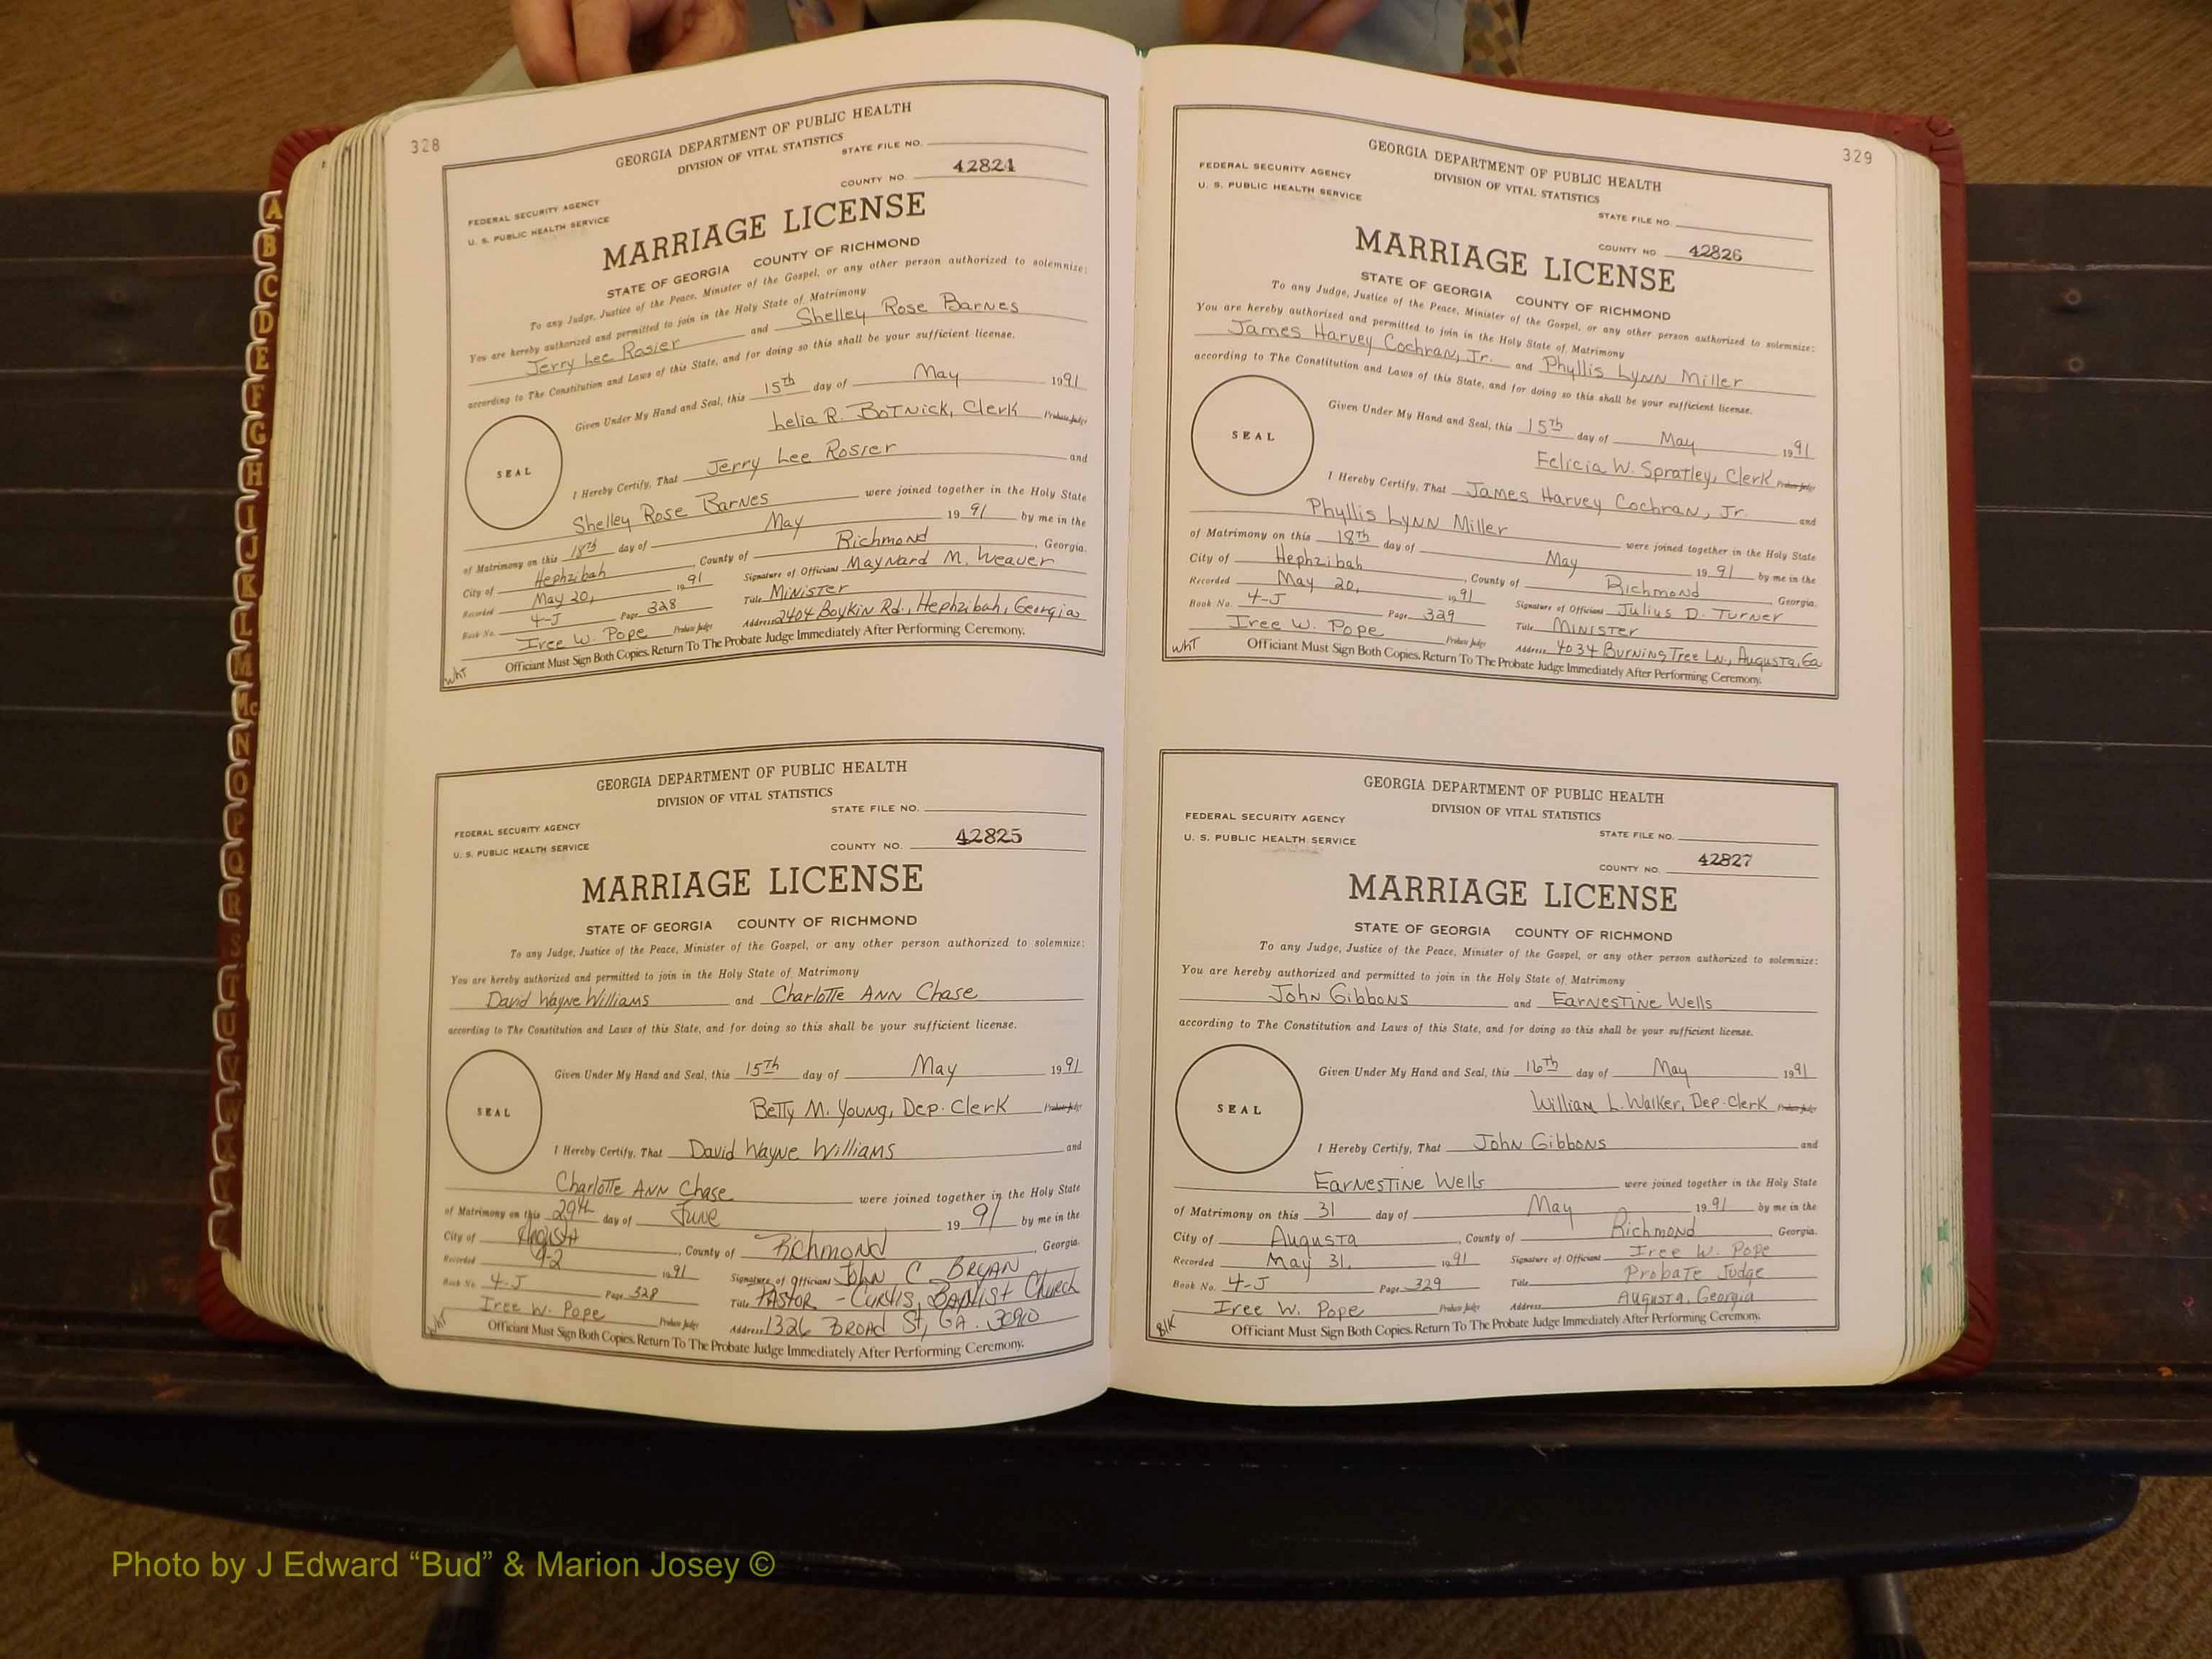 328
GEORGIA DEPARTMENT OF PUBLIC HEALTH
DIVISION OF VITAL STATISTICS
STATE FILE NO.
COUNTY NO. 42824
FEDERAL SECURITY AGENCY
U. S. PUBLIC HEALTH SERVICE
MARRIAGE LICENSE
STATE OF GEORGIA COUNTY OF RICHMOND
To any Judge, Justice of the Peace, Minister of the Gospel, or any other person authorized to solemnize:
You are hereby authorized and permitted to join in the Holy State of Matrimony
Jerry Lee Rosier and Shelley Rose Barnes
according to The Constitution and Laws of this State, and for doing so this shall be your sufficient license.
Given Under My Hand and Seal, this 15th day of May 1991
Lelia R. Botnick, Clerk Probate Judge
SEAL
I Hereby Certify, That Jerry Lee Rosier and
Shelley Rose Barnes were joined together in the Holy State
of Matrimony on this 18th day of May 19 91 by me in the
City of Hephzibah, County of Richmond, Georgia.
Recorded May 20, 1991 Signature of Officiant Maynard M. Weaver
Book No. 4-J Page 328 Title Minister
Iree W. Pope Probate Judge Address 2404 Boykin Rd., Hephzibah, Georgia
Officiant Must Sign Both Copies. Return To The Probate Judge Immediately After Performing Ceremony.
WHT
GEORGIA DEPARTMENT OF PUBLIC HEALTH
DIVISION OF VITAL STATISTICS
STATE FILE NO.
FEDERAL SECURITY AGENCY
U. S. PUBLIC HEALTH SERVICE
COUNTY NO. 42825
MARRIAGE LICENSE
STATE OF GEORGIA COUNTY OF RICHMOND
To any Judge, Justice of the Peace, Minister of the Gospel, or any other person authorized to solemnize:
You are hereby authorized and permitted to join in the Holy State of Matrimony
David Wayne Williams and Charlotte Ann Chase
according to The Constitution and Laws of this State, and for doing so this shall be your sufficient license.
Given Under My Hand and Seal, this 15th day of May 1991
Betty M. Young, Dep. Clerk Probate Judge
SEAL
I Hereby Certify, That David Wayne Williams and
Charlotte Ann Chase were joined together in the Holy State
of Matrimony on this 29th day of June 19 91 by me in the
City of Augusta, County of Richmond, Georgia.
Recorded 9-2 1991 Signature of Officiant John C Bryan
Book No. 4-J Page 328 Title Pastor - Curtis Baptist Church
Iree W. Pope Probate Judge Address 1326 Broad St, GA.
Officiant Must Sign Both Copies. Return To The Probate Judge Immediately After Performing Ceremony.
WHT
329
GEORGIA DEPARTMENT OF PUBLIC HEALTH
DIVISION OF VITAL STATISTICS
FEDERAL SECURITY AGENCY
U. S. PUBLIC HEALTH SERVICE
STATE FILE NO.
COUNTY NO. 42826
MARRIAGE LICENSE
STATE OF GEORGIA COUNTY OF RICHMOND
To any Judge, Justice of the Peace, Minister of the Gospel, or any other person authorized to solemnize:
You are hereby authorized and permitted to join in the Holy State of Matrimony
James Harvey Cochran, Jr. and Phyllis Lynn Miller
according to The Constitution and Laws of this State, and for doing so this shall be your sufficient license.
Given Under My Hand and Seal, this 15th day of May 1991
Felicia W. Spratley, Clerk Probate Judge
SEAL
I Hereby Certify, That James Harvey Cochran, Jr. and
Phyllis Lynn Miller were joined together in the Holy State
of Matrimony on this 18th day of May 19 91 by me in the
City of Hephzibah, County of Richmond Georgia.
Recorded May 20, 1991 Signature of Officiant Julius D. Turner
Book No. 4-J Page 329 Title Minister
Iree W. Pope Probate Judge Address 4034 Burning Tree Ln., Augusta, Ga
Officiant Must Sign Both Copies. Return To The Probate Judge Immediately After Performing Ceremony.
WHT
GEORGIA DEPARTMENT OF PUBLIC HEALTH
DIVISION OF VITAL STATISTICS
FEDERAL SECURITY AGENCY
U. S. PUBLIC HEALTH SERVICE
STATE FILE NO.
COUNTY NO. 42827
MARRIAGE LICENSE
STATE OF GEORGIA COUNTY OF RICHMOND
To any Judge, Justice of the Peace, Minister of the Gospel, or any other person authorized to solemnize:
You are hereby authorized and permitted to join in the Holy State of Matrimony
John Gibbons and Earnestine Wells
according to The Constitution and Laws of this State, and for doing so this shall be your sufficient license.
Given Under My Hand and Seal, this 16th day of May 1991
William L. Walker, Dep. Clerk Probate Judge
SEAL
I Hereby Certify, That John Gibbons and
Earnestine Wells were joined together in the Holy State
of Matrimony on this 31 day of May 19 91 by me in the
City of Augusta, County of Richmond, Georgia.
Recorded May 31, 1991 Signature of Officiant Iree W. Pope
Book No. 4-J Page 329 Title Probate Judge
Iree W. Pope Probate Judge Address Augusta, Georgia
Officiant Must Sign Both Copies. Return To The Probate Judge Immediately After Performing Ceremony.
Blk
A
B
C
D
E
F
G
H
I
J
K
L
M
Mc
N
O
P
Q
R
S
T
U
V
W
Photo by J Edward “Bud” & Marion Josey ©